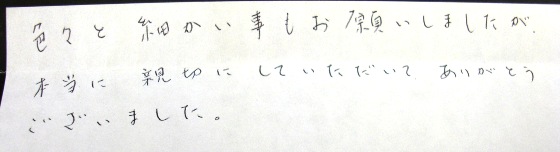 色々と細かい事もお願いしましたが、
本当に親切にしていただいてありがとう
ございました。